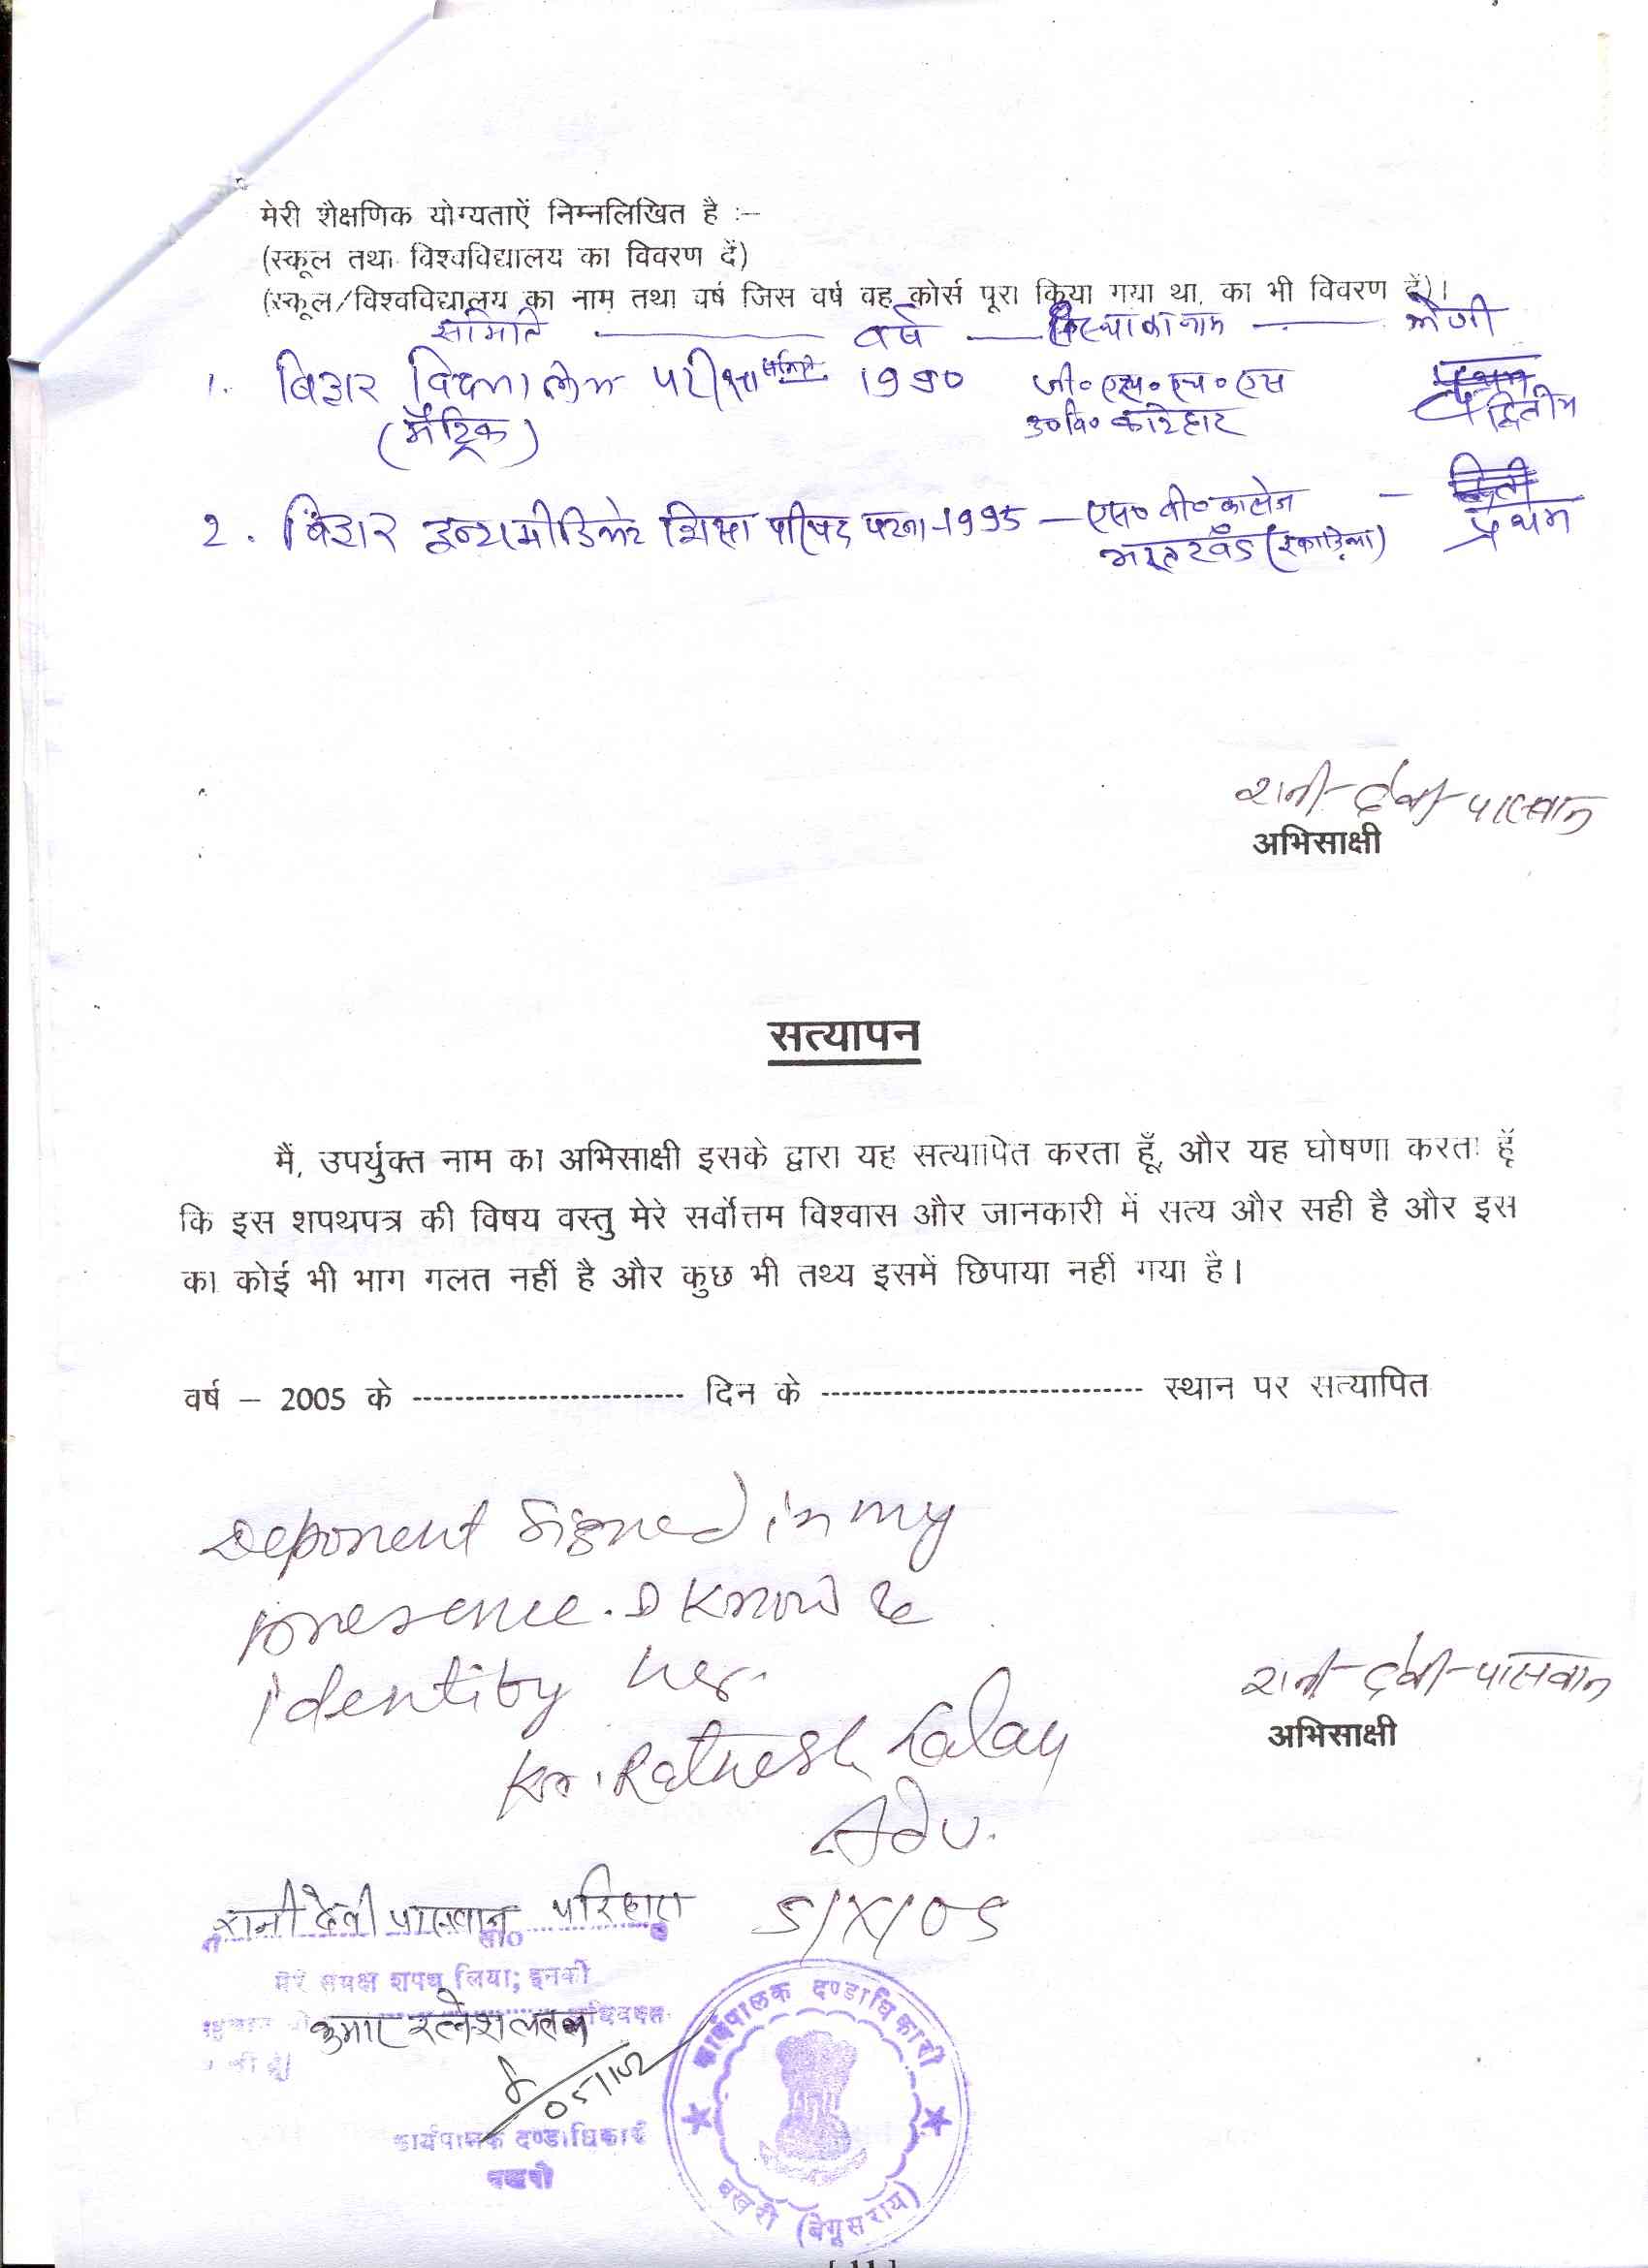 मेरी शैक्षणिक योग्यताऐं निम्नलिखित है :–
(स्कूल तथा विश्वविद्यालय का विवरण दें)
(स्कूल/विश्वविद्यालय का नाम तथा वर्ष जिस वर्ष वह कोर्स पूरा किया गया था, का भी विवरण दें)।
समिति ——— वर्ष —— का नाम ——— श्रेणी
1. बिहार विद्यालय परीक्षा समिति 1990 जी० एच० एस
(मैट्रिक) उ०वि० द्वितीय
2. बिहार इन्टरमीडिएट शिक्षा परिषद पटना-1995 — एस० वी० कालेज —
भरतखंड प्रथम
रानी-देवी-पासवान
अभिसाक्षी
सत्यापन
मैं, उपर्युक्त नाम का अभिसाक्षी इसके द्वारा यह सत्यापित करता हूँ, और यह घोषणा करता हूँ
कि इस शपथपत्र की विषय वस्तु मेरे सर्वोत्तम विश्वास और जानकारी में सत्य और सही है और इस
का कोई भी भाग गलत नहीं है और कुछ भी तथ्य इसमें छिपाया नहीं गया है।
वर्ष – 2005 के ------------------------ दिन के ---------------------------- स्थान पर सत्यापित
Deponent Signed in my
presence. I know &
identity her.
Kr. Ratnesh
Adv.
5/X/05
रानी-देवी-पासवान
अभिसाक्षी
रानी देवी पासवान
सा०
मेरे समक्ष शपथ लिया; इनकी
कुमार रत्नेश
कार्यपालक दण्डाधिकारी
बखरी
कार्यपालक दण्डाधिकारी
बखरी (बेगूसराय)
[ 11 ]